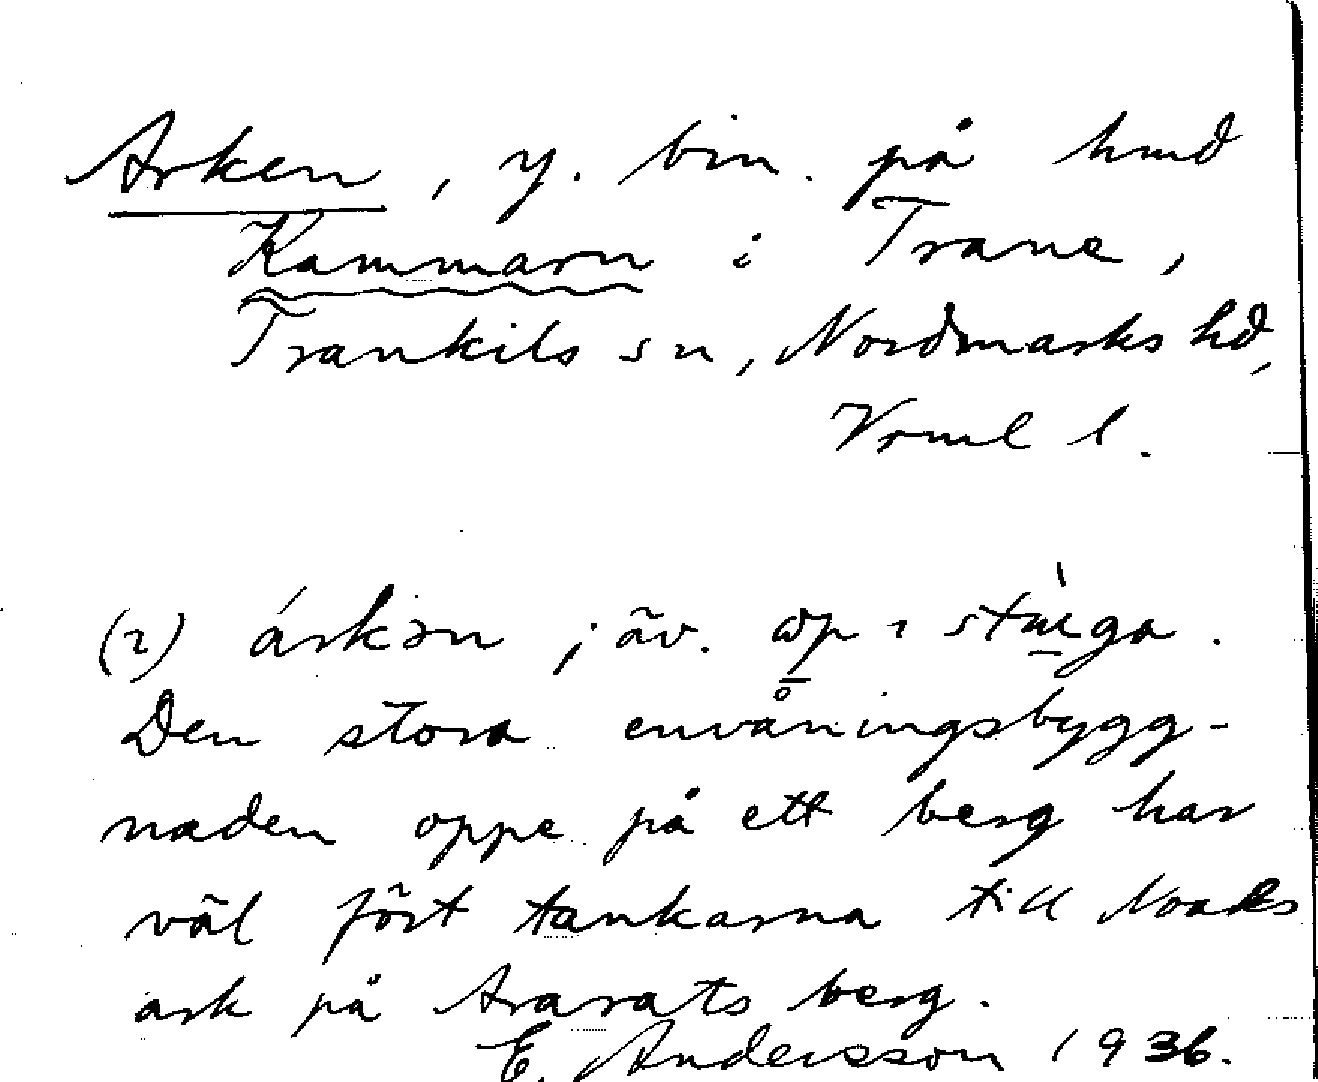 Arken, y. bin. på hmd
Kammarn i Trane,
Trankils sn, Nordmarks hd,
Vrml l.
(2) árkən; äv. op i stùga.
Den stora envåningsbygg-
naden oppe på ett berg har
väl fört tankarna till Noaks
ark på Ararats berg.
E. Andersson 1936.